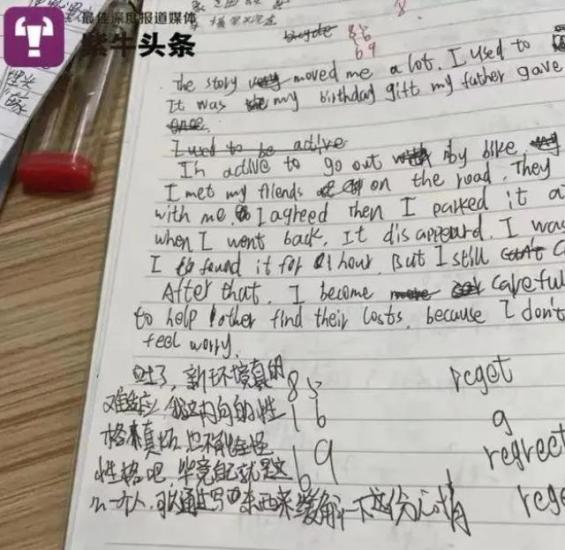 最佳深度报道媒体
紫牛头条
bicycle
8
86
69
The story moved me a lot. I used to
It was my birthday gift my father gave
I used to be active
In active to go out by bike
I met my friends on the road. They
with me. I agreed then I parked it a
when I went back, It disappeared. I was
I found it for 1 hour. But I still
After that. I become careful
to help other find their costs, because I don't
feel worry.
吐了，新环境真的 85 reget
难适应，我这内向的性 16 g
格真坏，也不能全怪 19 regreet
性格吧，毕竟自己就是这 rege
么一个人，可以通过写东西来缓解一下这份心情